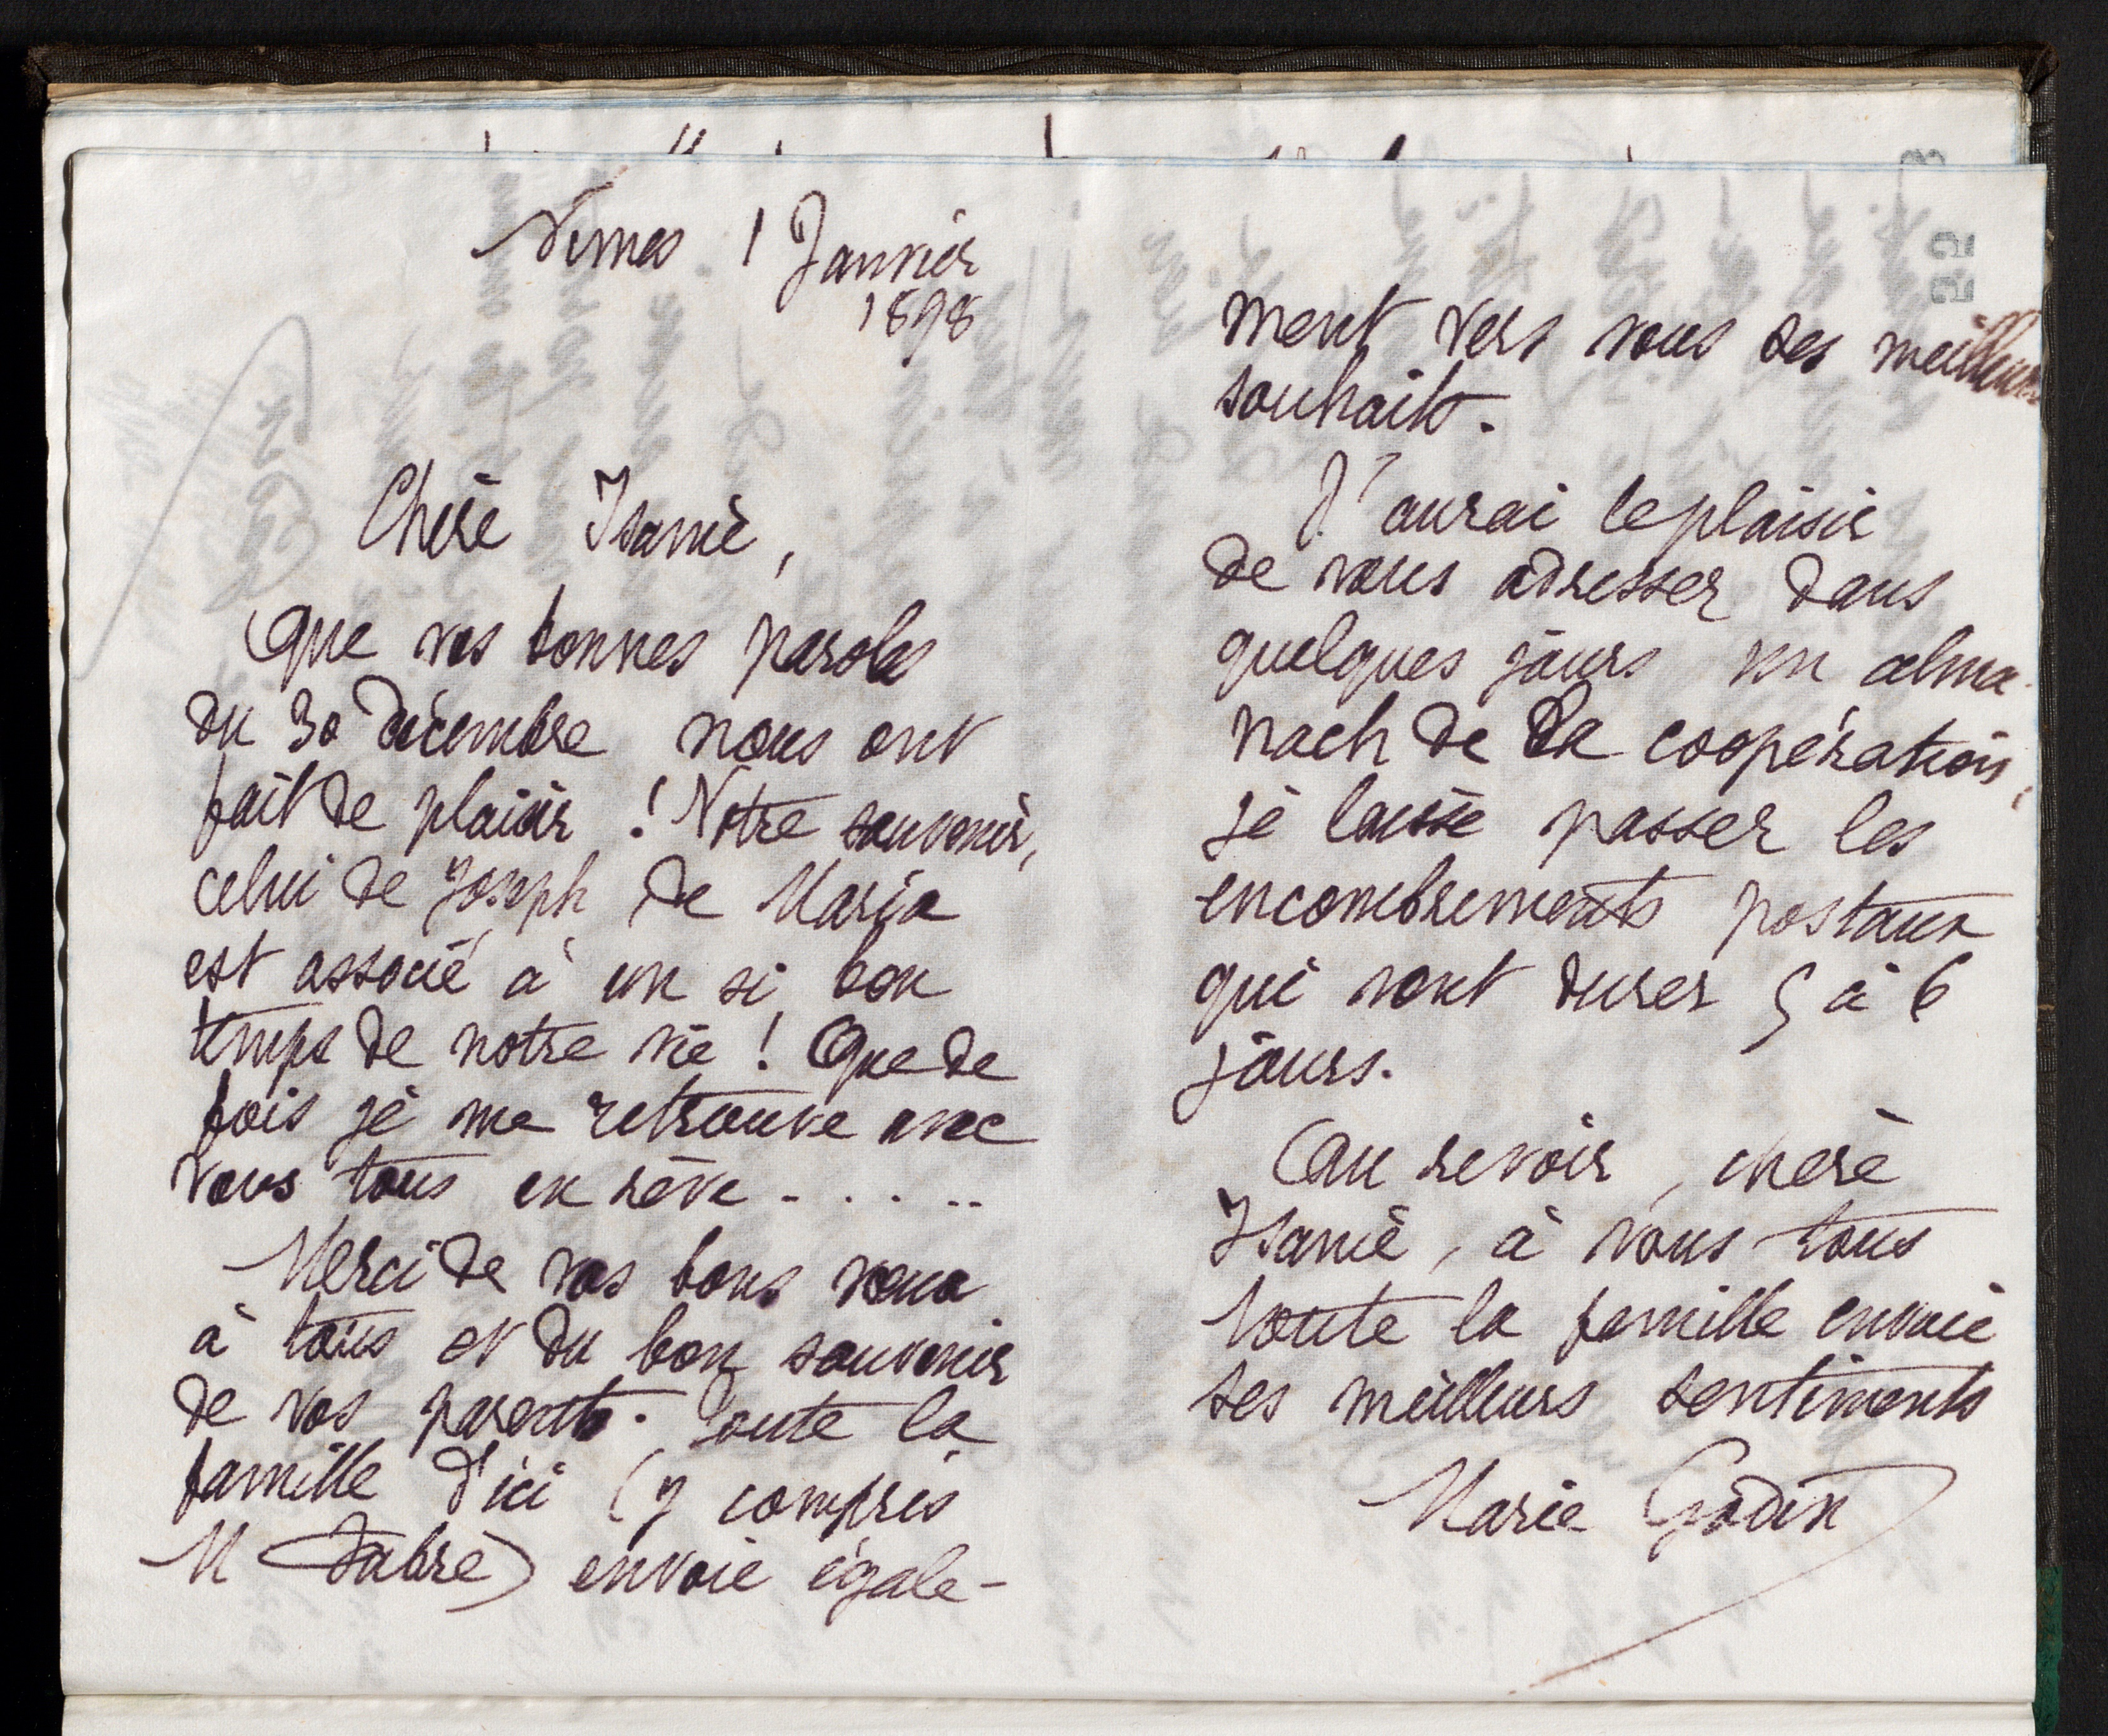 Nîmes 1 Janvier
1898
Chère Isanie,
Que vos bonnes paroles
du 30 décembre nous ont
fait de plaisir ! Votre souvenir,
celui de Joseph, de Maria
est associé à un si bon
temps de notre vie ! Que de
fois je me retrouve avec
vous tous en rêve......
Merci de vos bons vœux
à tous et du bon souvenir
de vos parents. Toute la
famille d'ici (y compris
M Fabre) envoie égale-
ment vers vous ses meilleurs
souhaits.
J'aurai le plaisir
de vous adresser dans
quelques jours un alma-
nach de la coopération,
je laisse passer les
encombrements postaux
qui vont durer 5 à 6
jours.
Au revoir, chère
Isanie, à vous tous
toute la famille envoie
ses meilleurs sentiments
Marie Godin